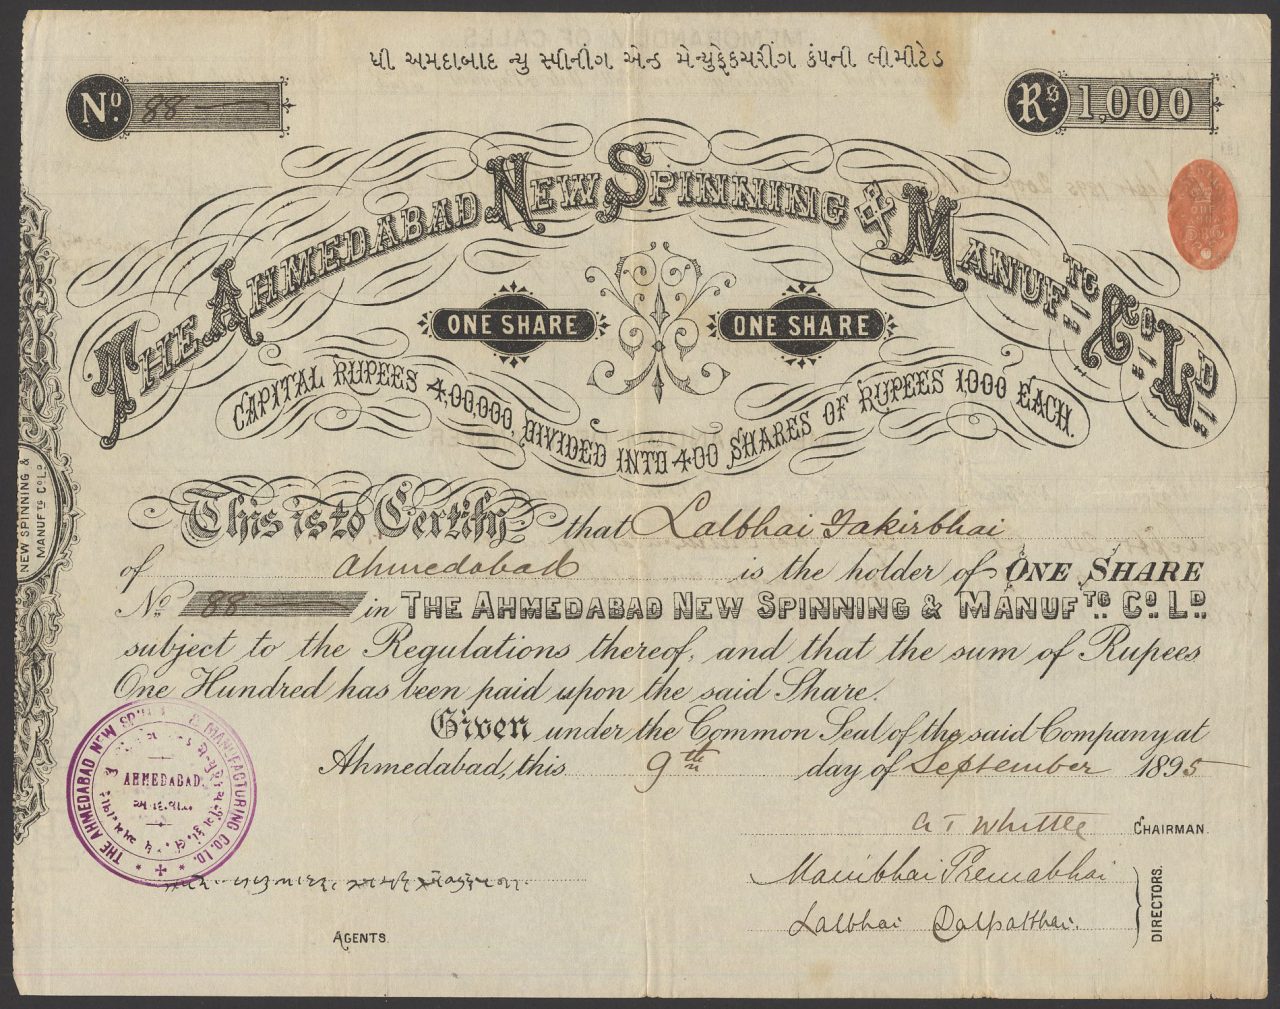 ધી અમદાબાદ ન્યુ સ્પીનીંગ એન્ડ મેન્યુફેકચરીંગ કંપની લીમીટેડ
No. 88
Rs. 1,000
THE AHMEDABAD NEW SPINNING & MANUFTG CO. LD.
ONE SHARE ONE SHARE
CAPITAL RUPEES 4,00,000, DIVIDED INTO 400 SHARES OF RUPEES 1000 EACH.
This is to Certify that Lalbhai Fakirbhai
of Ahmedabad is the holder of ONE SHARE
No. 88 in THE AHMEDABAD NEW SPINNING & MANUFTG. CO. LD.
subject to the Regulations thereof, and that the sum of Rupees
One Hundred has been paid upon the said Share.
Given under the Common Seal of the said Company at
Ahmedabad, this 9th day of September 1895
CHAIRMAN.
Manibhai Premabhai
Lalbhai Dalpatbhai.
DIRECTORS.
AGENTS.
THE AHMEDABAD NEW SPINNING & MANUFACTURING CO. LD.
AHMEDABAD
NEW SPINNING &
MANUFTG CO. LD.
ONE